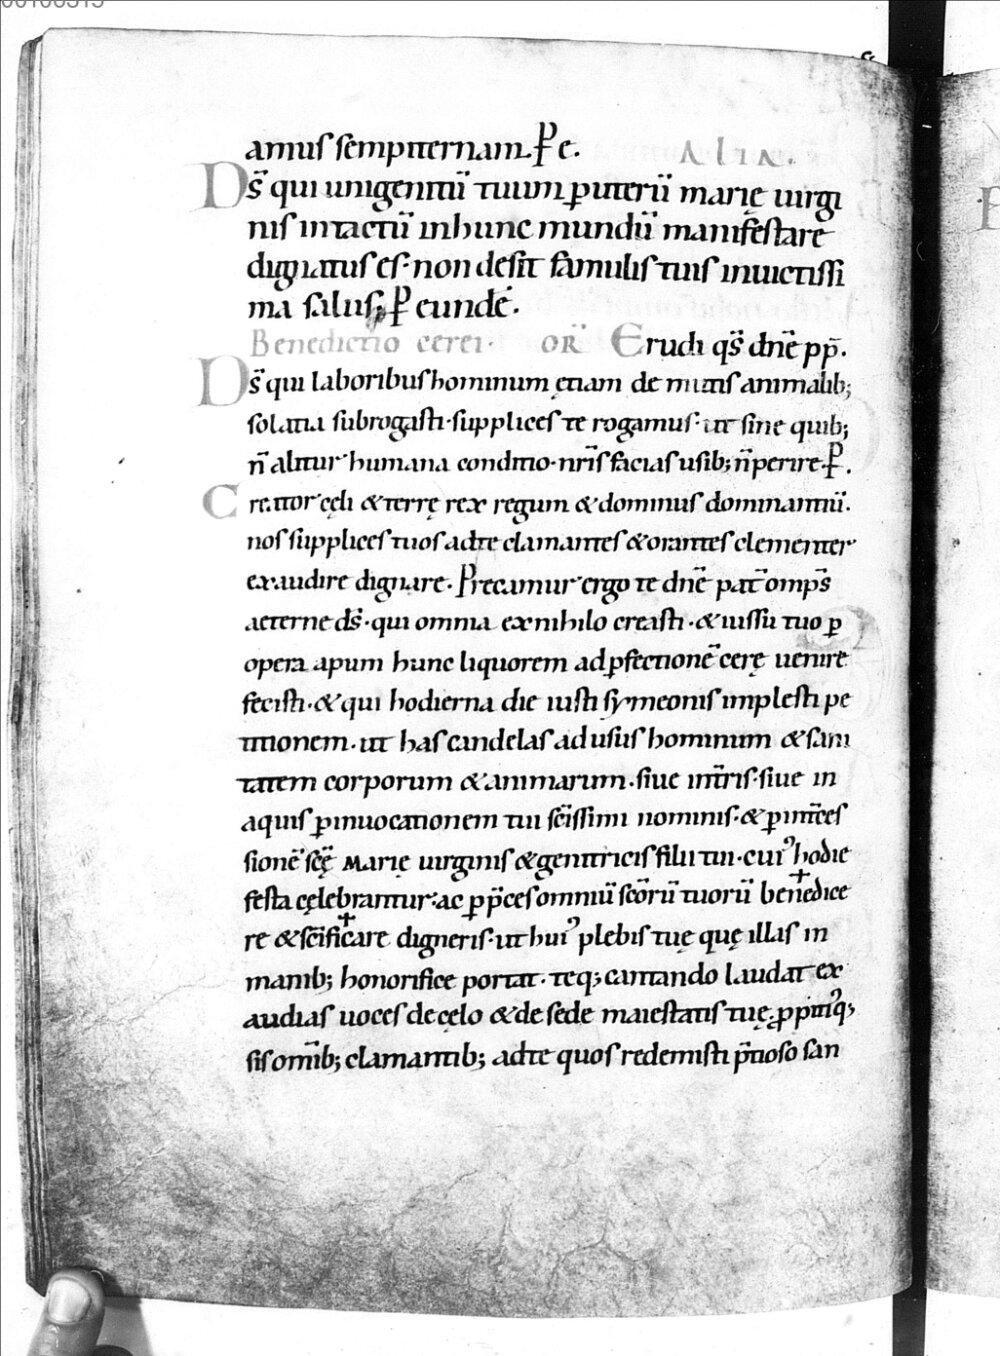 amus sempiternam. P̄ e. ALIA.
Ds̄ qui unigenitū tuum ꝑ uterū marię uirgi
nis intactū in hunc mundū manifestare
dignatus es· non desit famulis tuis inuictissi
ma salus; P̄ eundē.
Benedictio cerei. OR̄ Erudi qs̄ dn̄e pp̄.
Ds̄ qui laboribus hominum ętiam de mutis animalib;
solatia subrogasti· supplices te rogamus· ut sine quib;
n̄ alitur humana conditio· nr̄is facias usib; n̄ perire. P̄.
Creator cęli & terrę rex regum & dominus dominantiū.
nos supplices tuos ad te clamantes & orantes clementer
exaudire dignare. Precamur ergo te dn̄e pat̄ omp̄s
aeterne ds̄· qui omnia ex nihilo creasti· & iussu tuo ꝑ
opera apum hunc liquorem ad ꝑfectionē cerę uenire
fecisti· & qui hodierna die iusti symeonis implesti pe
titionem. ut has candelas ad usus hominum & sani
tatem corporum & animarum· siue int̄ris· siue in
aquis ꝑ inuocationem tui sc̄issimi nominis· & ꝑ int̄ces
sionē sc̄ę marię uirginis & genitricis filii tui· cui⁹ hodie
festa cęlebrantur· ac ꝑ p̄ces omniū sc̄orū tuorū bene✝dice
re & sc̄ifi✝care digneris· ut hui⁹ plebis tuę quę illas in
manib; honorifice portat· teq; cantando laudat ex
audias uoces de cęlo & de sede maiestatis tuę. ꝓpiti⁹q;
sis om̄ib; clamantib; ad te quos redemisti p̄tioso san